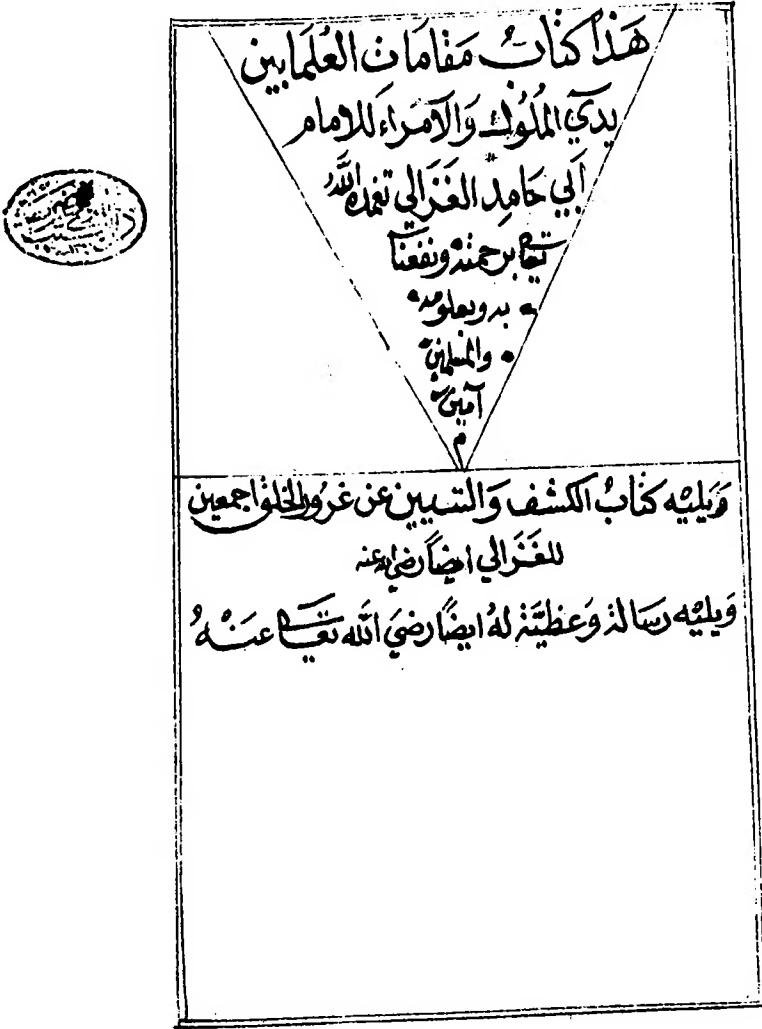 هَذَا كتابُ مَقَامَات العُلَمَا بين
يَدَيِ المُلُوك وَالأمَراء للامام
أبي حَامِد الغَزَالي تغمده اللهُ
تعا برحمته ونفعنا
به وبعلومه
والمسلمين
آمين
م
وَيليْه كتَابُ الكشف وَالتبيين عن غرُور الخلق اجمعين
للغَزَالي ايضاً رضي الله عنه
وَيليْه رسَالة وَعظيَّة لهُ ايضًا رَضيَ الله تعا عَنْهُ